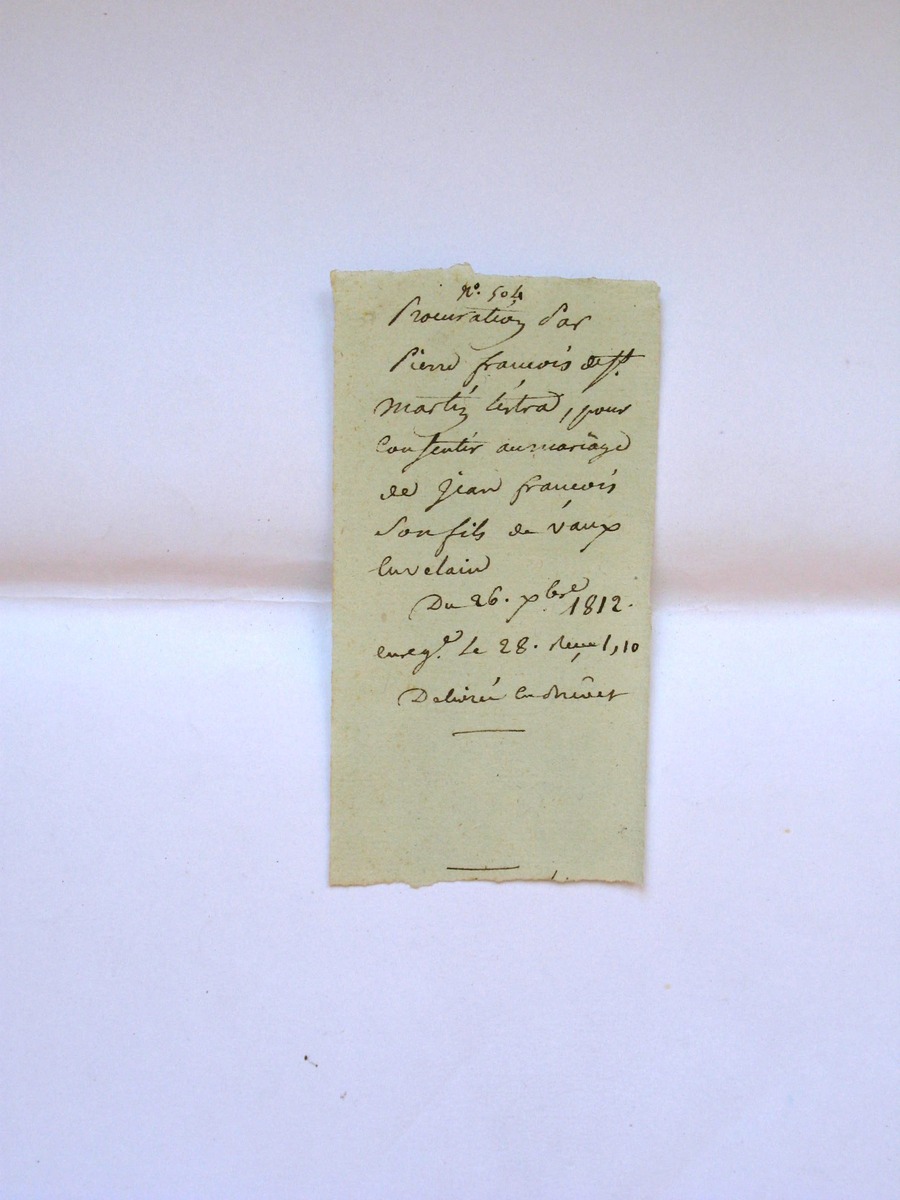 N°. 504
Procuration par
Pierre francois de St.
Martin Lestra, pour
Consentir au mariage
de jean francois
Son fils de Vaux
En velain
Du 26. xbre 1812.
enregé. le 28. Reçu 1,10
Delivrée En Brevet